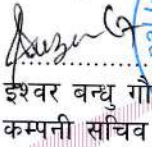 ईश्वर बन्धु गौ
कम्पनी सचिव